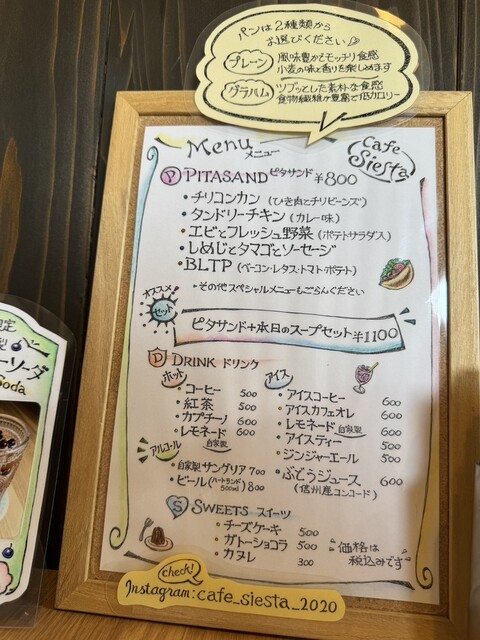 パンは2種類から
お選びください♪
プレーン 風味豊かでモッチリ食感
小麦の味と香りを楽しめます
グラハム ツブッとした素朴な食感
食物繊維が豊富で低カロリー
Menu
メニュー
Cafe
Siesta
P PITASAND ピタサンド ¥800
・チリコンカン(ひき肉とチリビーンズ)
・タンドリーチキン(カレー味)
・エビとフレッシュ野菜(ポテトサラダス)
・しめじとタマゴとソーセージ
・BLTP(ベーコン・レタス・トマト・ポテト)
*その他スペシャルメニューもごらんください
オススメ
セット
ピタサンド+本日のスープセット¥1100
D DRINK ドリンク
ホット
・コーヒー 500
・紅茶 500
・カプチーノ 600
・レモネード 自家製 600
アイス
・アイスコーヒー 600
・アイスカフェオレ 600
・レモネード 自家製 600
・アイスティー 500
・ジンジャーエール 500
・ぶどうジュース 600
(信州産コンコード)
アルコール
・自家製サングリア 700
・ビール(ハートランド500ml) 800
S SWEETS スイーツ
・チーズケーキ 500
・ガトーショコラ 500
・カヌレ 300
価格は
税込みです
check!
Instagram: cafe_siesta_2020
限定
製
ーソーダ
Soda